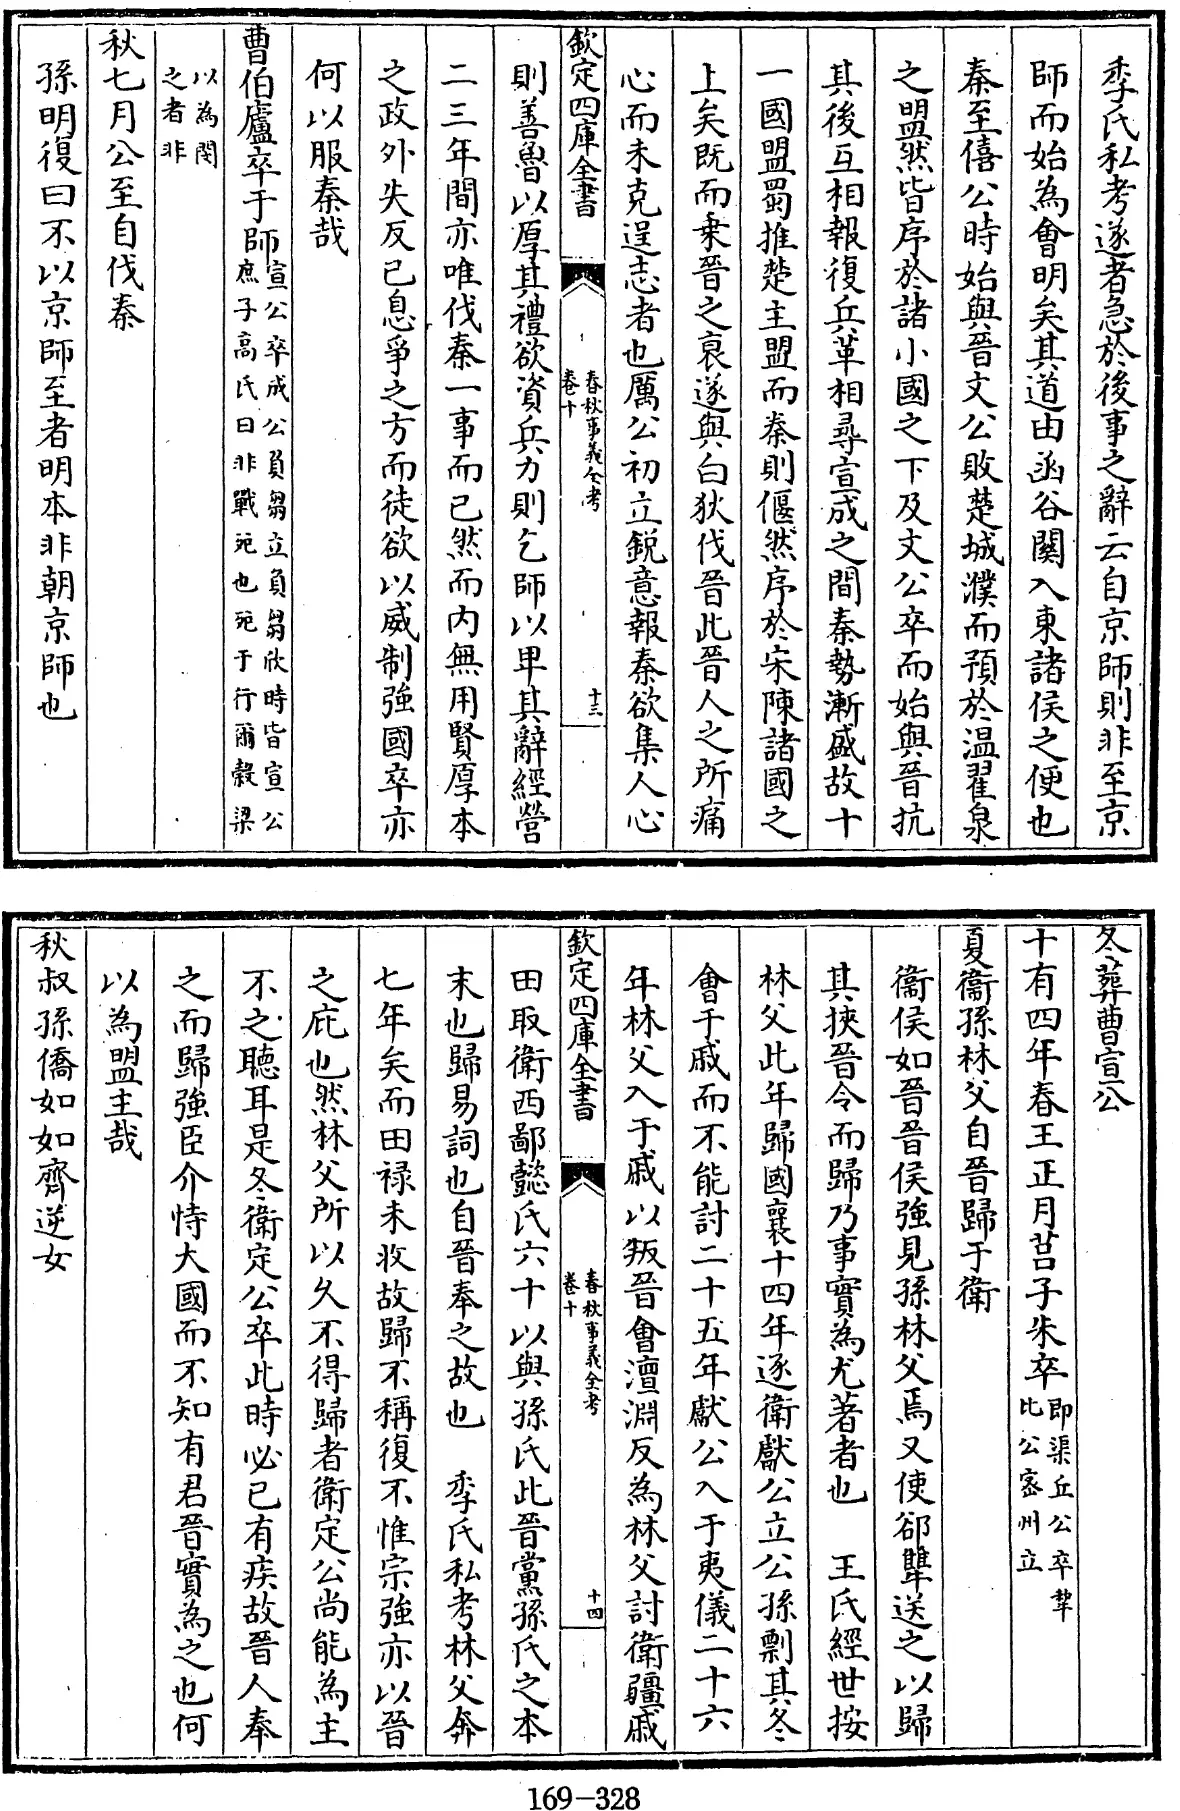 季氏私考遂者急於後事之辭云自京師則非至京
師而始為會明矣其道由函谷關入東諸侯之便也
秦至僖公時始與晉文公敗楚城濮而預於溫翟泉
之盟然皆序於諸小國之下及文公卒而始與晉抗
其後互相報復兵革相尋宣成之間秦勢漸盛故十
一國盟蜀推楚主盟而秦則偃然序於宋陳諸國之
上矣既而乗晉之衰遂與白狄伐晉此晉人之所痛
心而未克逞志者也厲公初立銳意報秦欲集人心
欽定四庫全書
春秋事義全考
卷十
十三
則善魯以厚其禮欲資兵力則乞師以卑其辭經營
二三年間亦唯伐秦一事而已然而内無用賢厚本
之政外失反已息爭之方而徒欲以威制強國卒亦
何以服秦哉
曹伯廬卒于師宣公卒成公負芻立負芻欣時皆宣公
庶子高氏曰非戰死也死于行爾穀梁
以為閔
之者非
秋七月公至自伐秦
孫明復曰不以京師至者明本非朝京師也
冬葬曹宣公
十有四年春王正月莒子朱卒即渠丘公卒犂
比公密州立
夏衞孫林父自晉歸于衛
衞侯如晉晉侯強見孫林父焉又使郤犨送之以歸
其挾晉令而歸乃事實為尤著者也　王氏經世按
林父此年歸國襄十四年逐衛獻公立公孫剽其冬
會于戚而不能討二十五年獻公入于夷儀二十六
年林父入于戚以叛晉會澶淵反為林父討衛疆戚
欽定四庫全書
春秋事義全考
卷十
十四
田取衛西鄙懿氏六十以與孫氏此晉黨孫氏之本
末也歸易詞也自晉奉之故也　季氏私考林父奔
七年矣而田禄未收故歸不稱復不惟宗強亦以晉
之庇也然林父所以久不得歸者衛定公尚能為主
不之聽耳是冬衛定公卒此時必已有疾故晉人奉
之而歸強臣介恃大國而不知有君晉實為之也何
以為盟主哉
秋叔孫僑如如齊逆女
169-328